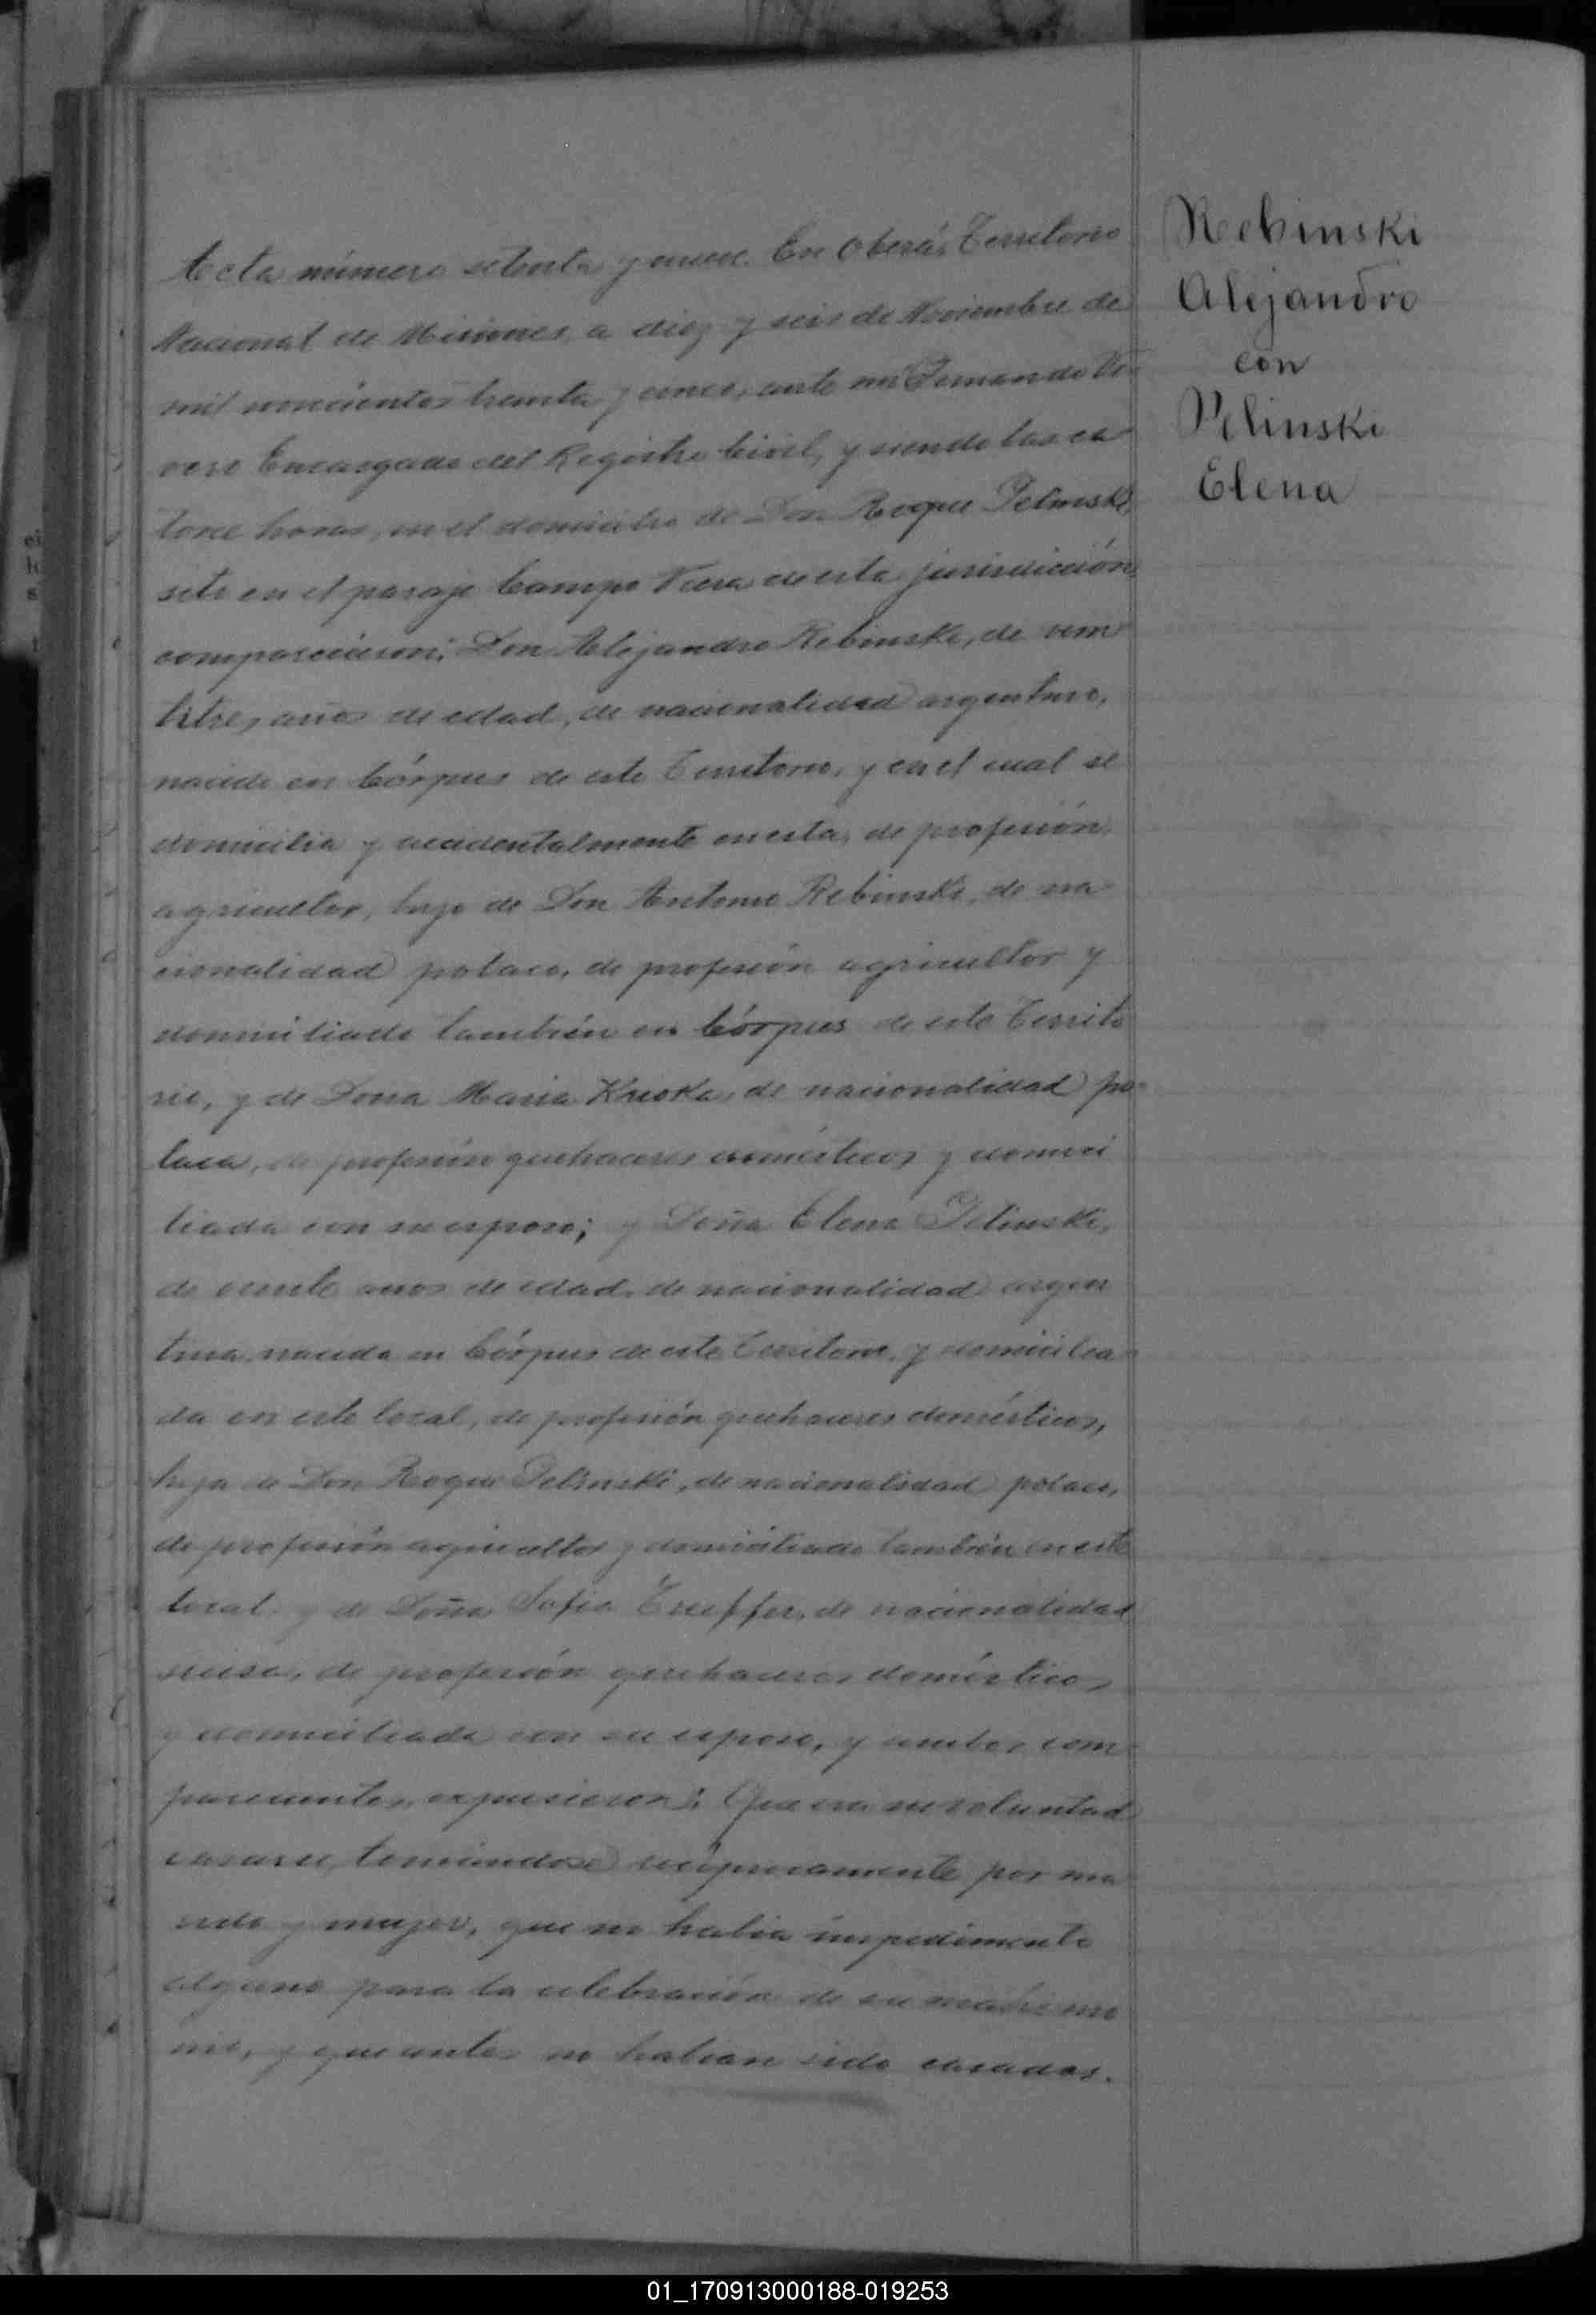 Acta número setenta y nueve. En Oberá, Territorio
Nacional de Misiones, a diez y seis de Noviembre de
mil novecientos treinta y cinco, ante mi Fernando Vi-
vero Encargado del Registro Civil, y siendo las ca
torce horas, en el domicilio de Don Roque Pelinski,
sito en el paraje Campo Viera de esta jurisdicción,
comparecieron: Don Alejandro Rebinski, de vein
titres años de edad, de nacionalidad argentino,
nacido en Córpus de este Territorio, y en el cual se
domicilia y accidentalmente en esta, de profesión
agricultor, hijo de Don Antonio Rebinski, de na
cionalidad polaco, de profesión agricultor y
domiciliado también en Córpus de este Territo
rio, y de Doña Maria de nacionalidad po-
laca, de profesión quehaceres domésticos y domici
liada con su esposo; y Doña Elena Pelinski,
de veinte años de edad, de nacionalidad argen
tina nacida en Córpus de este Territorio, y domicilia-
da en este local, de profesión quehaceres domésticos,
hija de Don Roque Pelinski, de nacionalidad polaco,
de profesión agricultor y domiciliado también en este
local, y de Doña Sofia de nacionalidad
suiza, de profesión quehaceres domésticos
y domiciliada con su esposo, y ambos com-
parecientes, expusieron: Que era su voluntad
casarse, tomándose recíprocamente por ma
rido y mujer, que no habia impedimento
alguno para la celebración de su matrimo
nio, y que antes no habian sido casados.
Rebinski
Alejandro
con
Pelinski
Elena
01_170913000188-019253